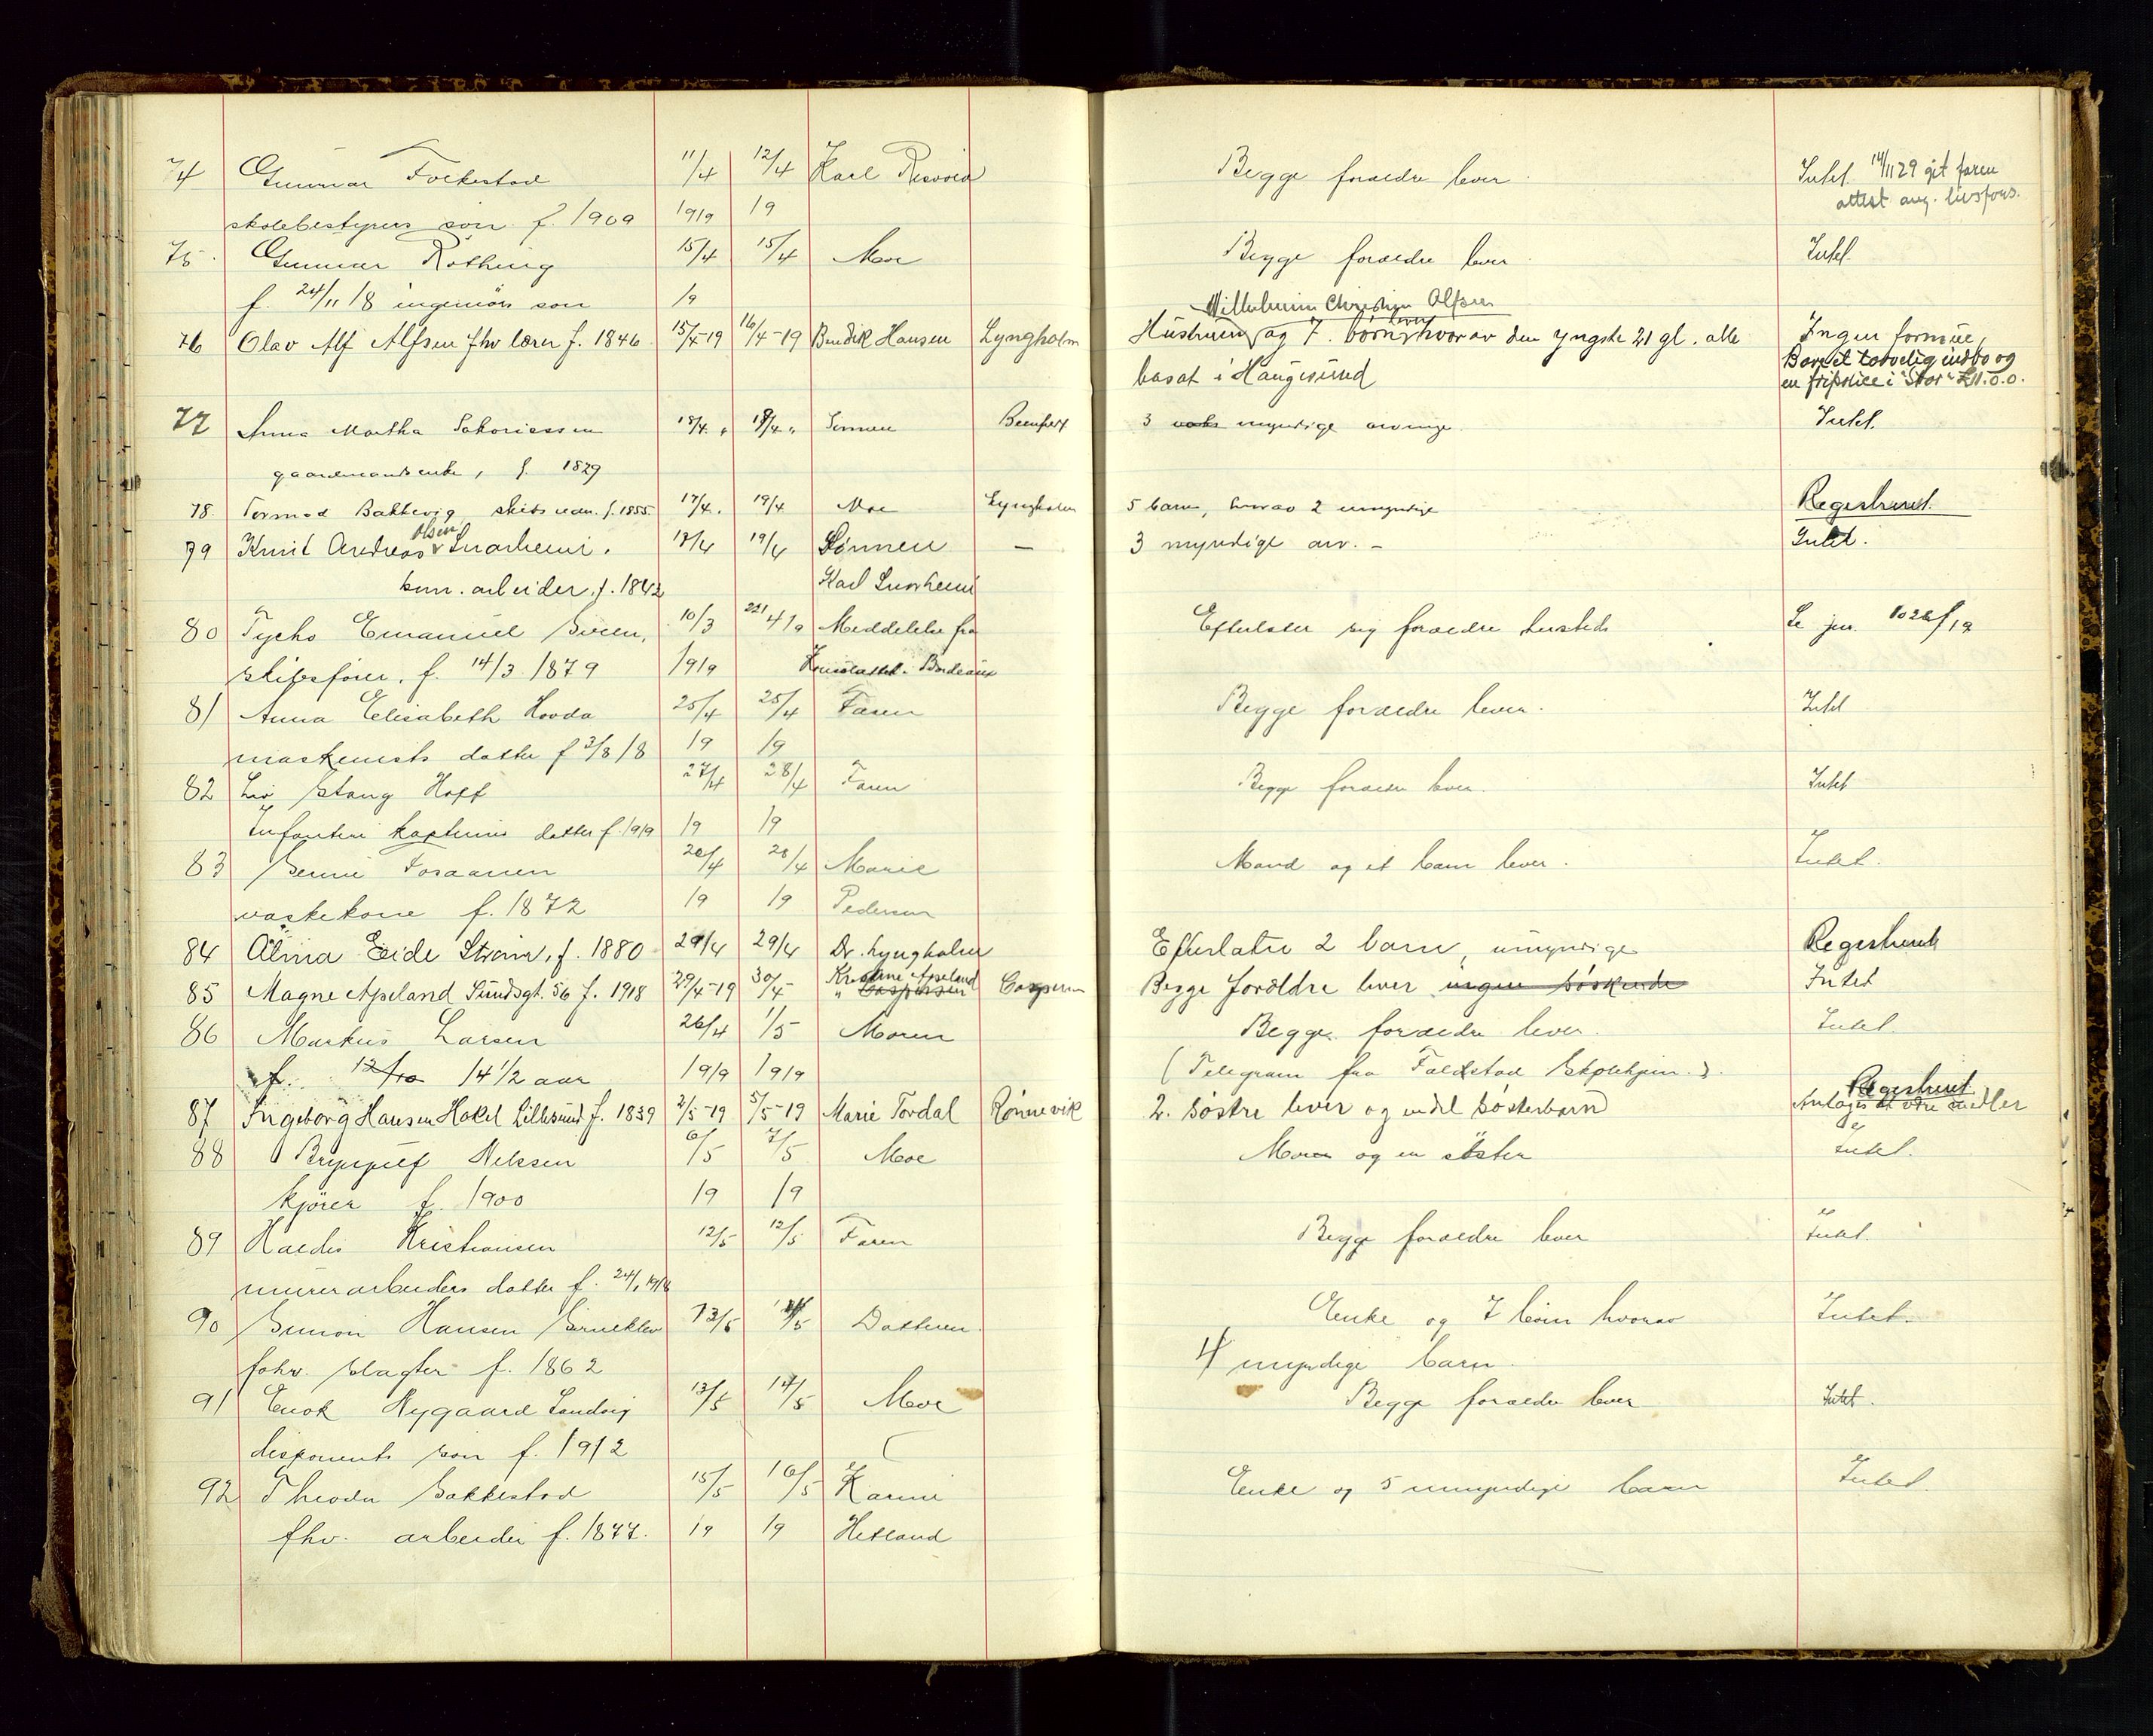 74 Gunnar Folkestad 11/4 12/4 Karl Risvold Begge forældre lever. Intet 14/11 29 git faren
attest ang. livsfors.
skolebestyrers søn f. 1909 1919 19
75. Gunnar Røthing 15/4 15/4 Moe Begge forældre lever Intet.
f. 24/11 18 ingeniørs søn 19
Christine Alfsen
76 Olav Alf Alfsen fhv lærer f. 1846 15/4-19 16/4-19 Bendik Hansen Lyngholm Hustruen og 7. børn hvorav den yngste 21 gl. alle Ingen formue,
bosat i Haugesund Bare et tarvelig indbo og
en i "Stor"
77 Anna Martha Sakariassen 18/4. " 19/4 " Sønnen 3 myndige arvinge. Intet.
gaardmandsenke, f. 1829
78. Tormod Bakkevig, skibsreder. f. 1855. 17/4. 19/4 Moe Lyngholm 5 barn, hvorav 2 umyndige Registreret.
79 Knut Andreas Olsen 18/4 19/4 Sønnen — 3 myndige arv. – Intet.
kom. arbeider, f. 1842 Karl
80 Tycho Emanuel 10/3 Meddelelse fra Efterlater sig forældre hersteds Se jur. 1026/19
skibsfører. f. 14/3 1879 1919 Konsulatet. Bordeaux
81 Anna Elisabeth Hovda 25/4 25/4 Faren Begge forældre lever. Intet
maskinists datter f 3/8 18 19 19
82 Liv Stang Hoff 27/4 28/4 Faren Begge forældre lever. Intet
Infanteri kapteins datter f. 1919 19 19
83 28/4 28/4 Marie Mand og et barn lever. Intet.
vaskekone f. 1872 19 19 Pedersen
84 Alma Eide Strøm, f. 1880 29/4 29/4 Dr. Lyngholm Efterlater 2 barn, umyndige Registreret
85 Magne Apeland Sundsgt. 56 f. 1918 29/4-19 30/4- Apeland Begge foreldre lever ingen søskende Intet
" Caspersen
86 Markus Larsen 26/4 1/5 Moren Begge forældre lever. Intet.
f. 12/10 14 1/2 aar 1919 1919 (Telegram fra Foldstad Skolehjem.).
Registreret
87 Ingeborg Hansen Hokel Lillesund f. 1839 2/5-19 5/5-19 Marie Tordal Rønnevik 2. søstre lever og endel søsterbarn
88 Brynjulf Nilssen 6/5 7/5 Moe Moren og en søster Intet.
kjører f. 1900 19 19
89 Haldis Kristiansen 12/5 12/5 Faren Begge forældre lever Intet.
murerarbeiders datter f.
90 Simon Hansen 13/5 Datteren. Enke og 7 børn hvorav Intet.
fohv. slagter f. 1862 4 myndige barn.
91 Enok Nygaard Sandvig 13/5 14/5 Moe Begge forældre lever Intet.
disponents søn f. 1912
92 Theodor Sakkestad 15/5 16/5 Karine Enke og 5 umyndige barn Intet.
fhv. arbeider f. 1877. 19 19 Hetland